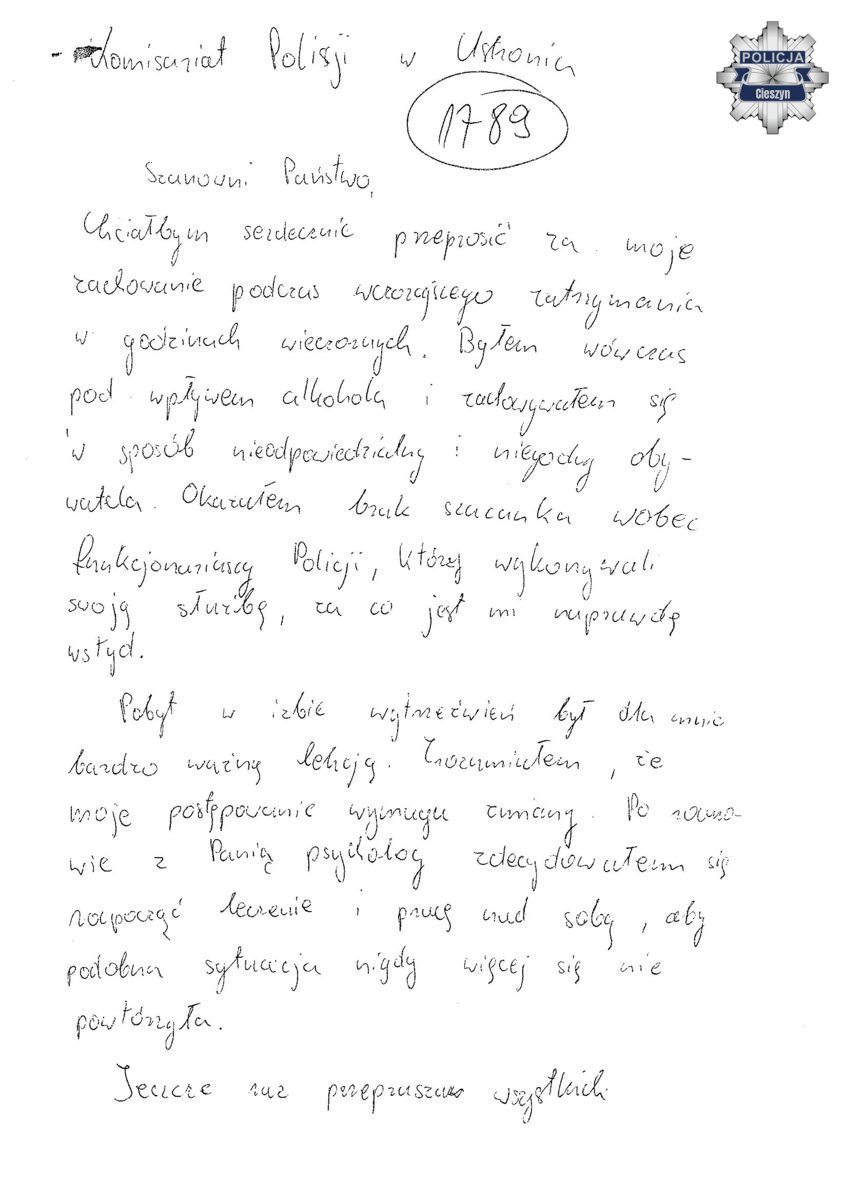 - Komisariat Policji w Ustroniu
POLICJA
Cieszyn
1789
Szanowni Państwo,
Chciałbym serdecznie przeprosić za moje
zachowanie podczas wczorajszego zatrzymania
w godzinach wieczornych. Byłem wówczas
pod wpływem alkoholu i zachowywałem się
w sposób nieodpowiedzialny i niegodny oby-
watela. Okazałem brak szacunku wobec
funkcjonariuszy Policji, którzy wykonywali
swoją służbę, za co jest mi naprawdę
wstyd.
Pobyt w izbie wytrzeźwień był dla mnie
bardzo ważną lekcją. Zrozumiałem, że
moje postępowanie wymaga zmiany. Po rozmo-
wie z Panią psycholog zdecydowałem się
rozpocząć leczenie i pracę nad sobą, aby
podobna sytuacja nigdy więcej się nie
powtórzyła.
Jeszcze raz przepraszam wszystkich